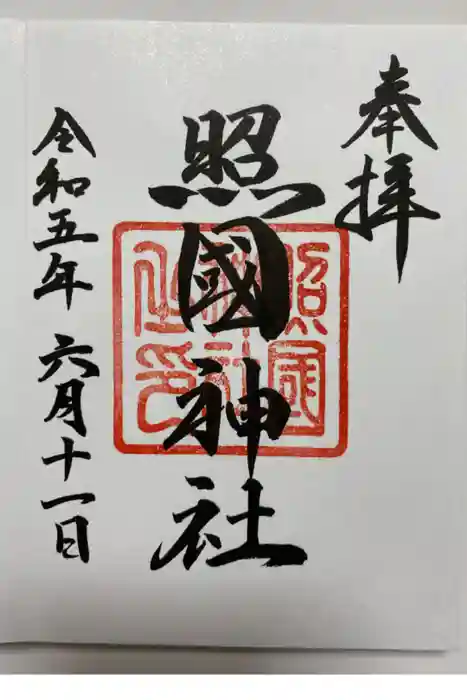 奉拝
照國神社
照國
神社
之印
令和五年 六月十一日